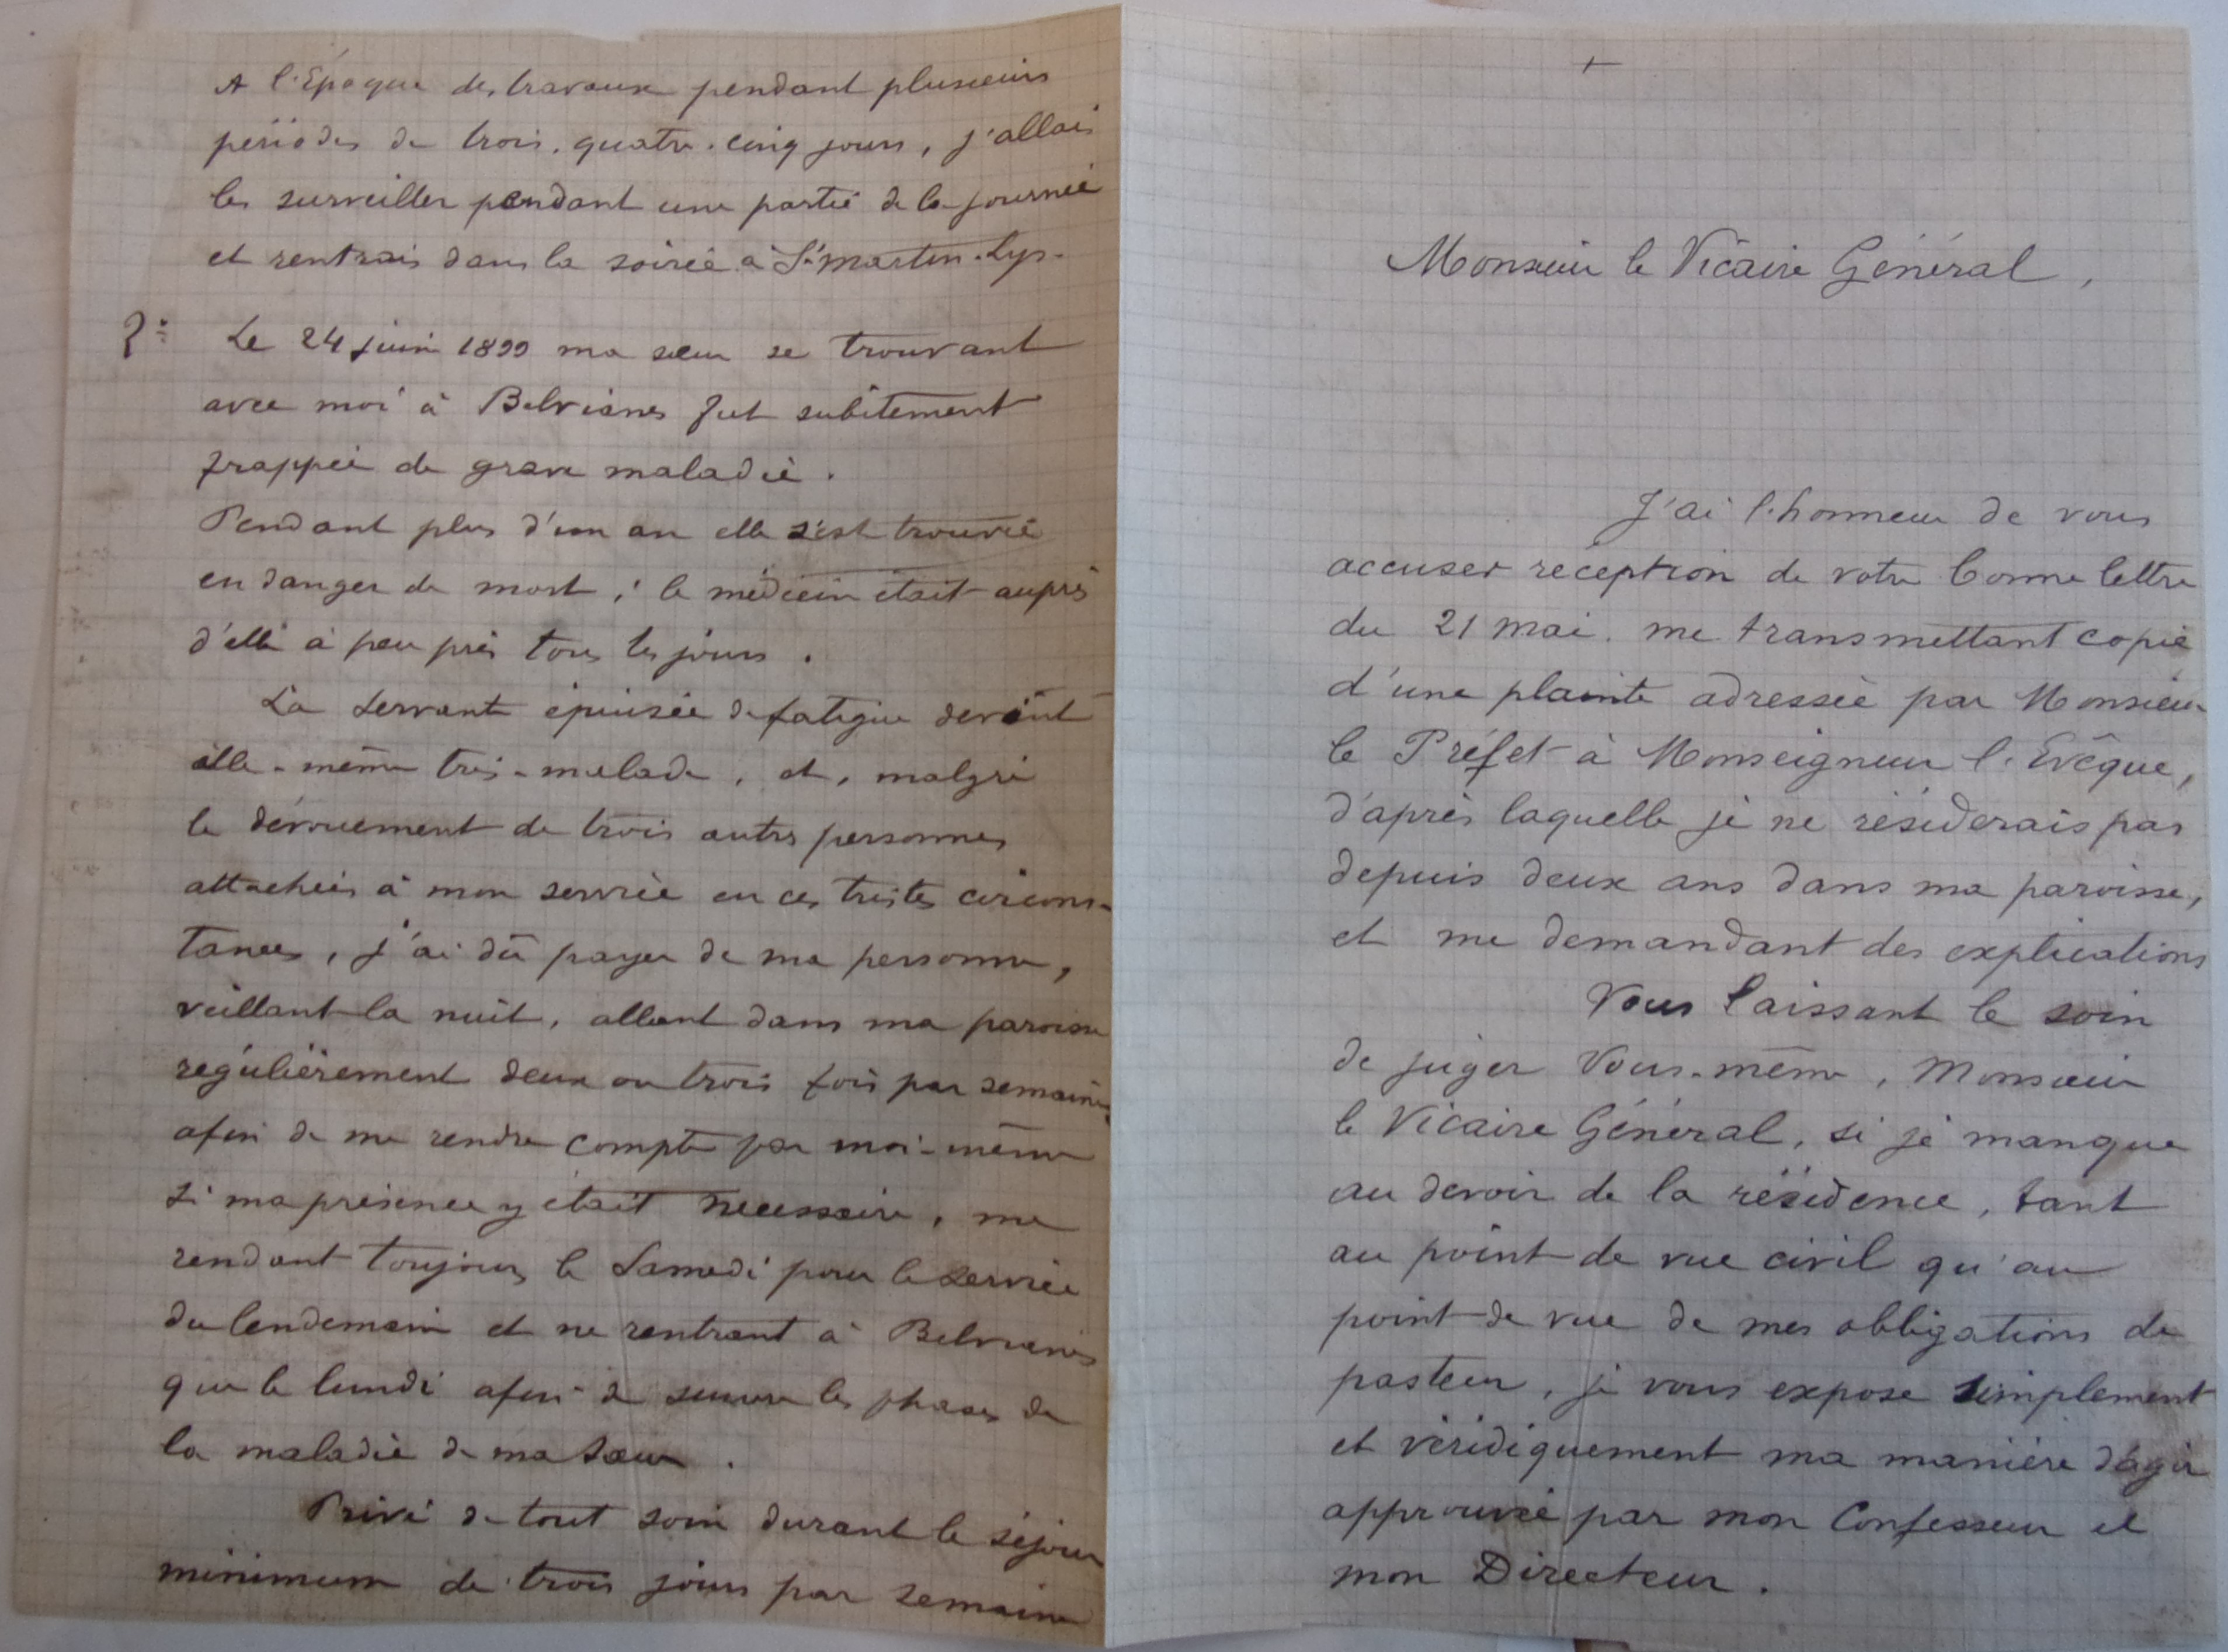 A l'Epoque des travaux pendant plusieurs
périodes de trois, quatre, cinq jours, j'allais
les surveiller pendant une partie de la journée
et rentrais dans la soirée à St Martin-Lys.
2° Le 24 juin 1899 ma sœur se trouvant
avec moi à Belvianes fut subitement
frappée de grave maladie.
Pendant plus d'un an elle s'est trouvée
en danger de mort ; le médecin était auprès
d'elle à peu près tous les jours.
La servante épuisée de fatigue devint
elle-même très-malade, et, malgré
le dévouement de trois autres personnes
attachées à mon service en ces tristes circons-
tances, j'ai dû payer de ma personne,
veillant la nuit, allant dans ma paroisse
régulièrement deux ou trois fois par semaine
afin de me rendre compte par moi-même
si ma présence y était necessaire, me
rendant toujours le Samedi pour le service
du lendemain et ne rentrant à Belvianes
que le lundi afin de suivre les phases de
la maladie de ma sœur.
Privé de tout soin durant le séjour
minimum de trois jours par semaine
+
Monsieur le Vicaire Général,
J'ai l'honneur de vous
accuser réception de votre bonne lettre
du 21 mai. me transmettant copie
d'une plainte adressée par Monsieur
le Préfet à Monseigneur l'Evêque,
d'après laquelle je ne résiderais pas
depuis deux ans dans ma paroisse,
et me demandant des explications
Vous laissant le soin
de juger Vous-même, Monsieur
le Vicaire Général, si je manque
au devoir de la résidence, tant
au point de vue civil qu'au
point de vue de mes obligations de
pasteur, je vous expose simplement
et véridiquement ma manière d'agir
approuvée par mon Confesseur et
mon Directeur.